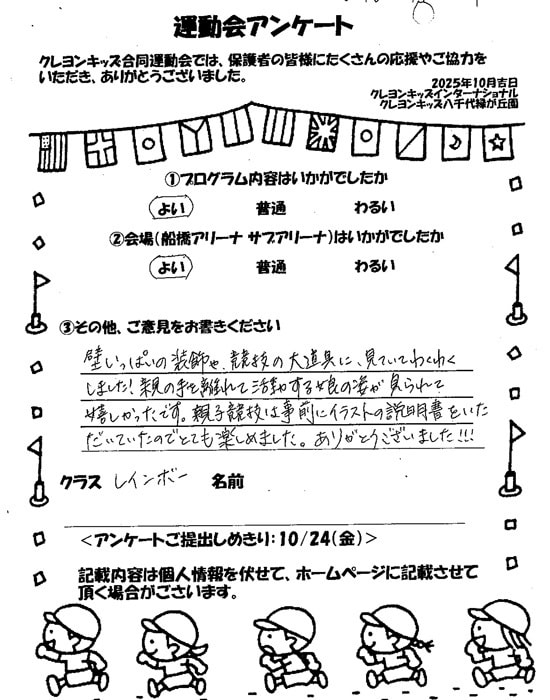 運動会アンケート
クレヨンキッズ合同運動会では、保護者の皆様にたくさんの応援やご協力を
いただき、ありがとうございました。
2025年10月吉日
クレヨンキッズインターナショナル
クレヨンキッズ八千代緑が丘園
①プログラム内容はいかがでしたか
よい 普通 わるい
②会場(船橋アリーナ サブアリーナ)はいかがでしたか
よい 普通 わるい
③その他、ご意見をお書きください
壁いっぱいの装飾や、競技の大道具に、見ていてわくわく
しました!親の手を離れて活動する娘の姿が見られて
嬉しかったです。親子競技は事前にイラストの説明書をいた
だいていたのでとても楽しめました。ありがとうございました!!!
クラス レインボー 名前
<アンケートご提出しめきり:10/24(金)>
記載内容は個人情報を伏せて、ホームページに記載させて
頂く場合がございます。